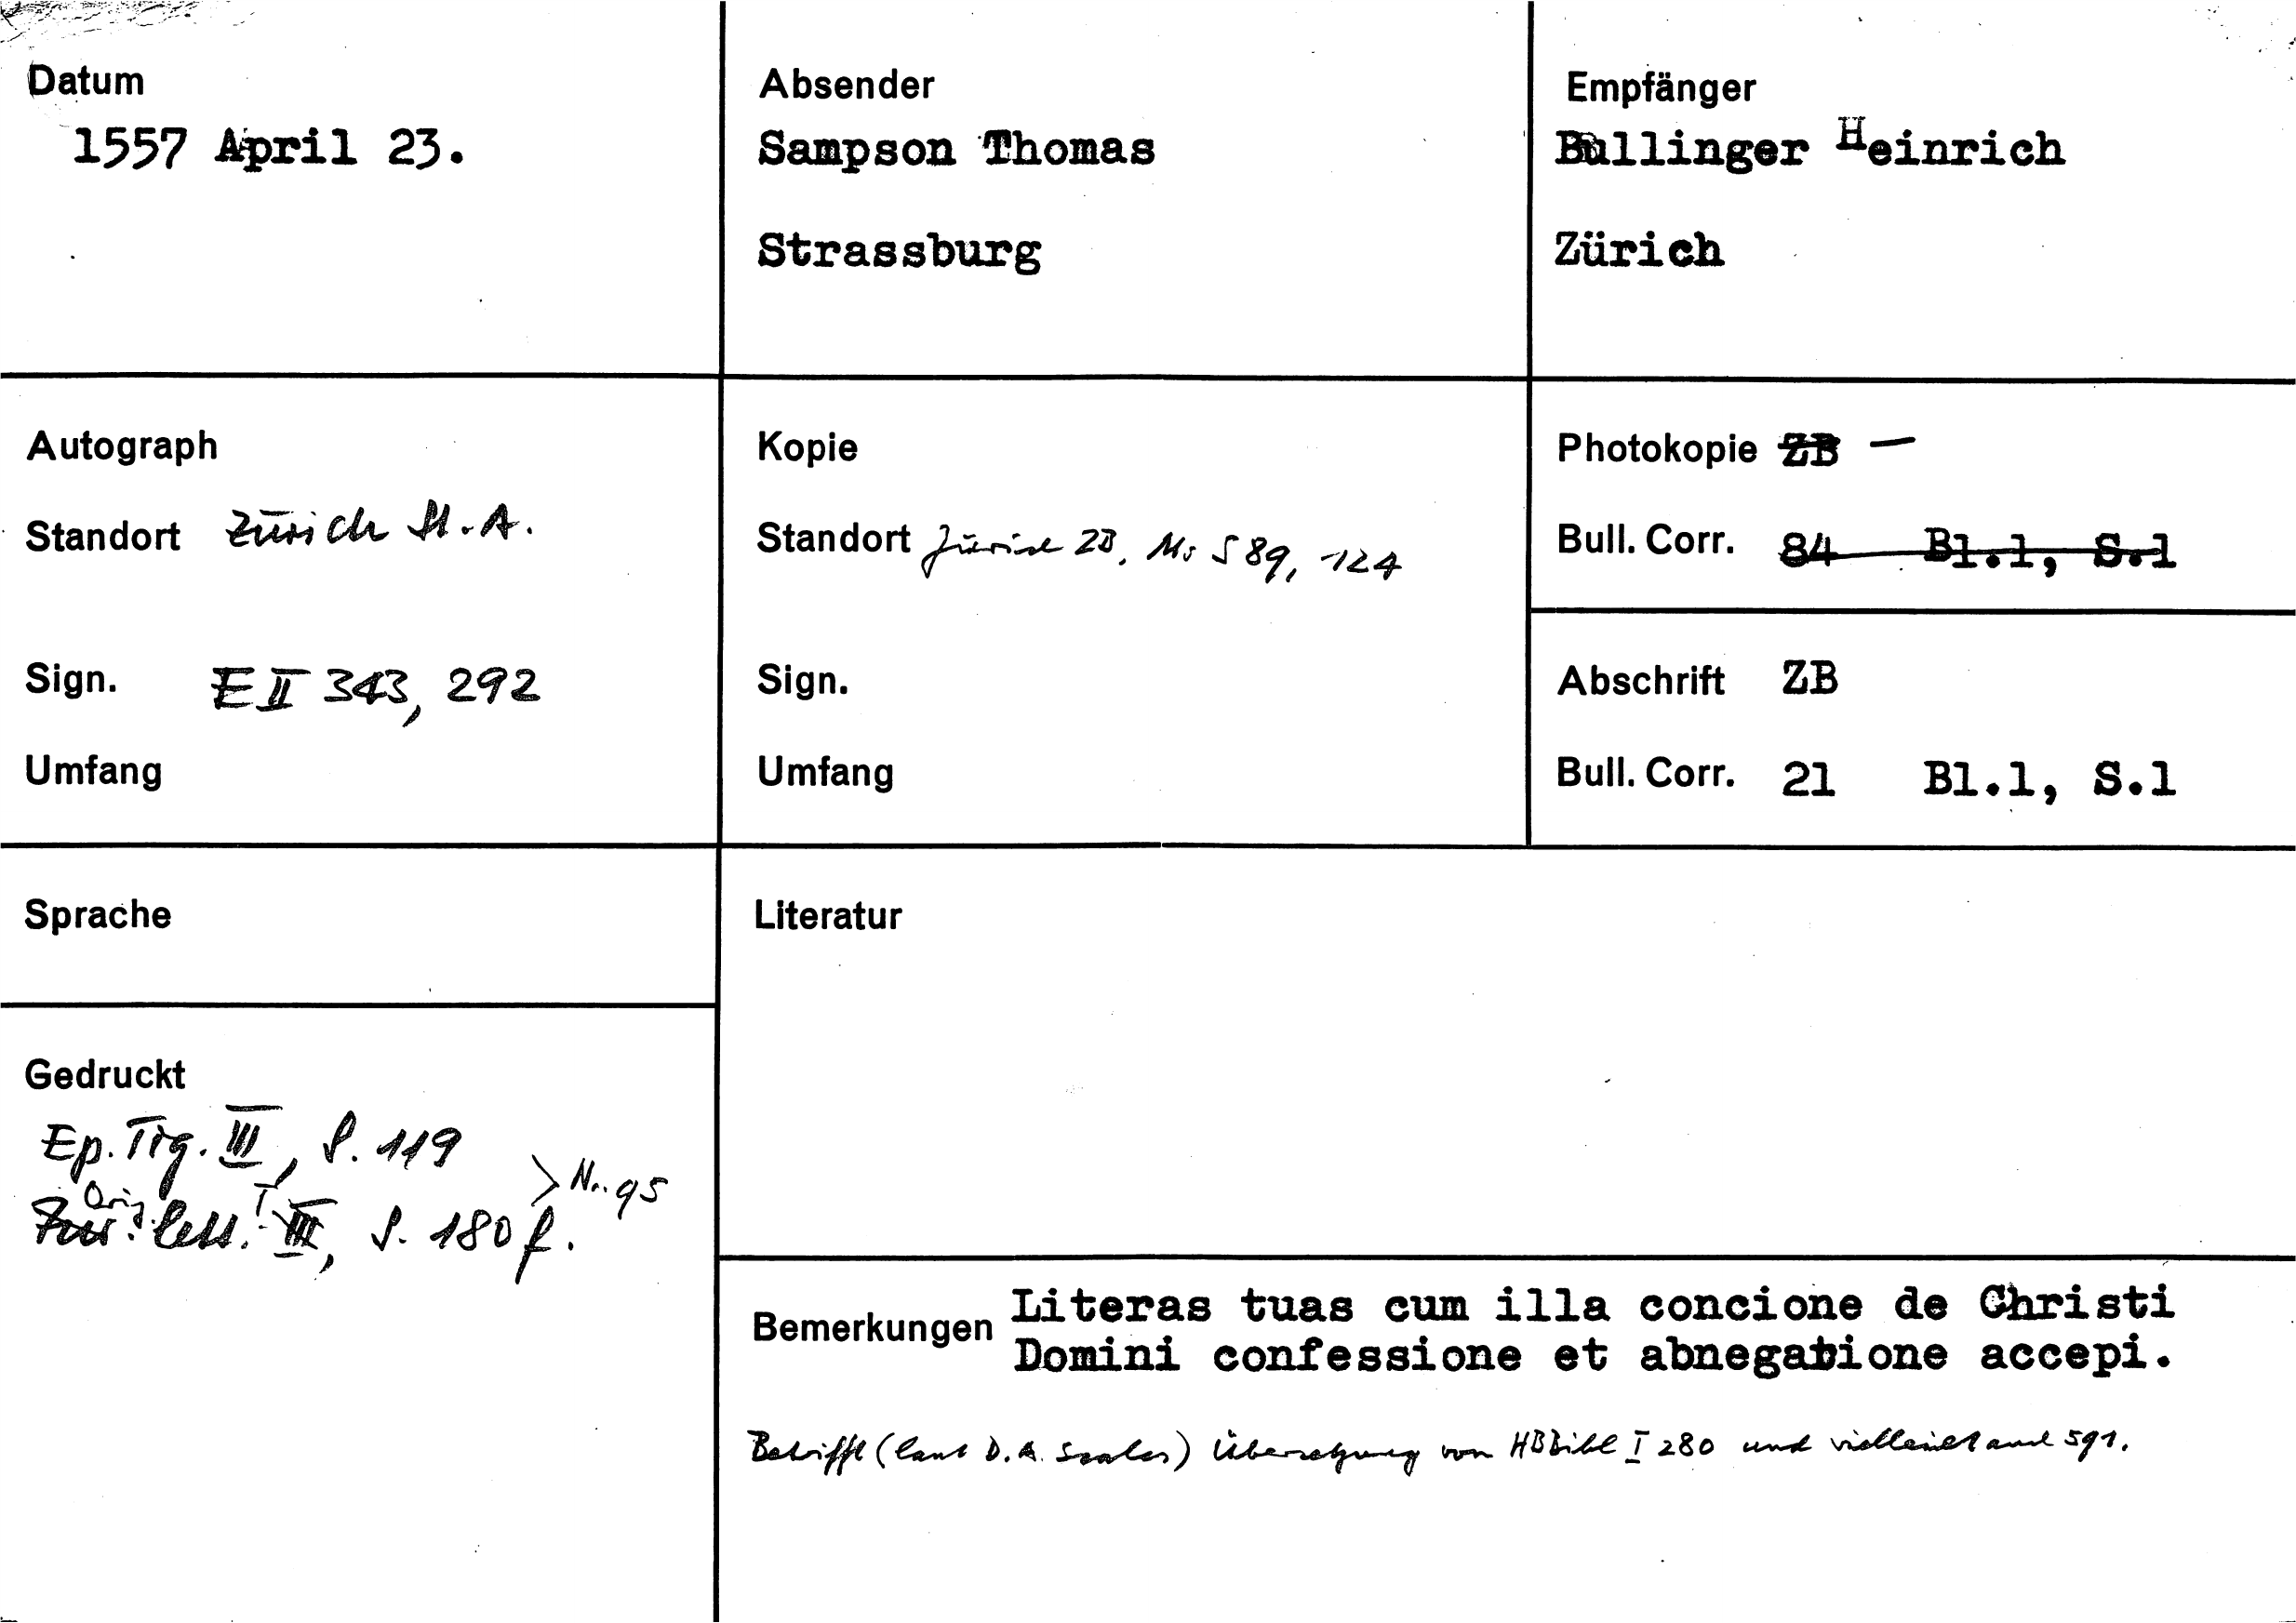 Datum
1557 April 23.
Absender
Sampson Thomas
Strassburg
Empfänger
Bullinger Heinrich
Zürich
Autograph
Standort Zürich St.A.
Sign. E II 343, 292
Umfang
Kopie
Standort Zürich ZB, Ms S 89, 124
Sign.
Umfang
Photokopie ZB —
Bull. Corr. 84 Bl.1, S.1
Abschrift ZB
Bull. Corr. 21 Bl.1, S.1
Sprache
Literatur
Gedruckt
Ep. Tig. III, S. 119
Orig. lett. I III, S. 180 f.
> Nr. 95
Bemerkungen Literas tuas cum illa concione de Christi
Domini confessione et abnegatione accepi.
Betrifft (laut D. A. ) Übersetzung von HBBibl I 280 und vielleicht auch 591.